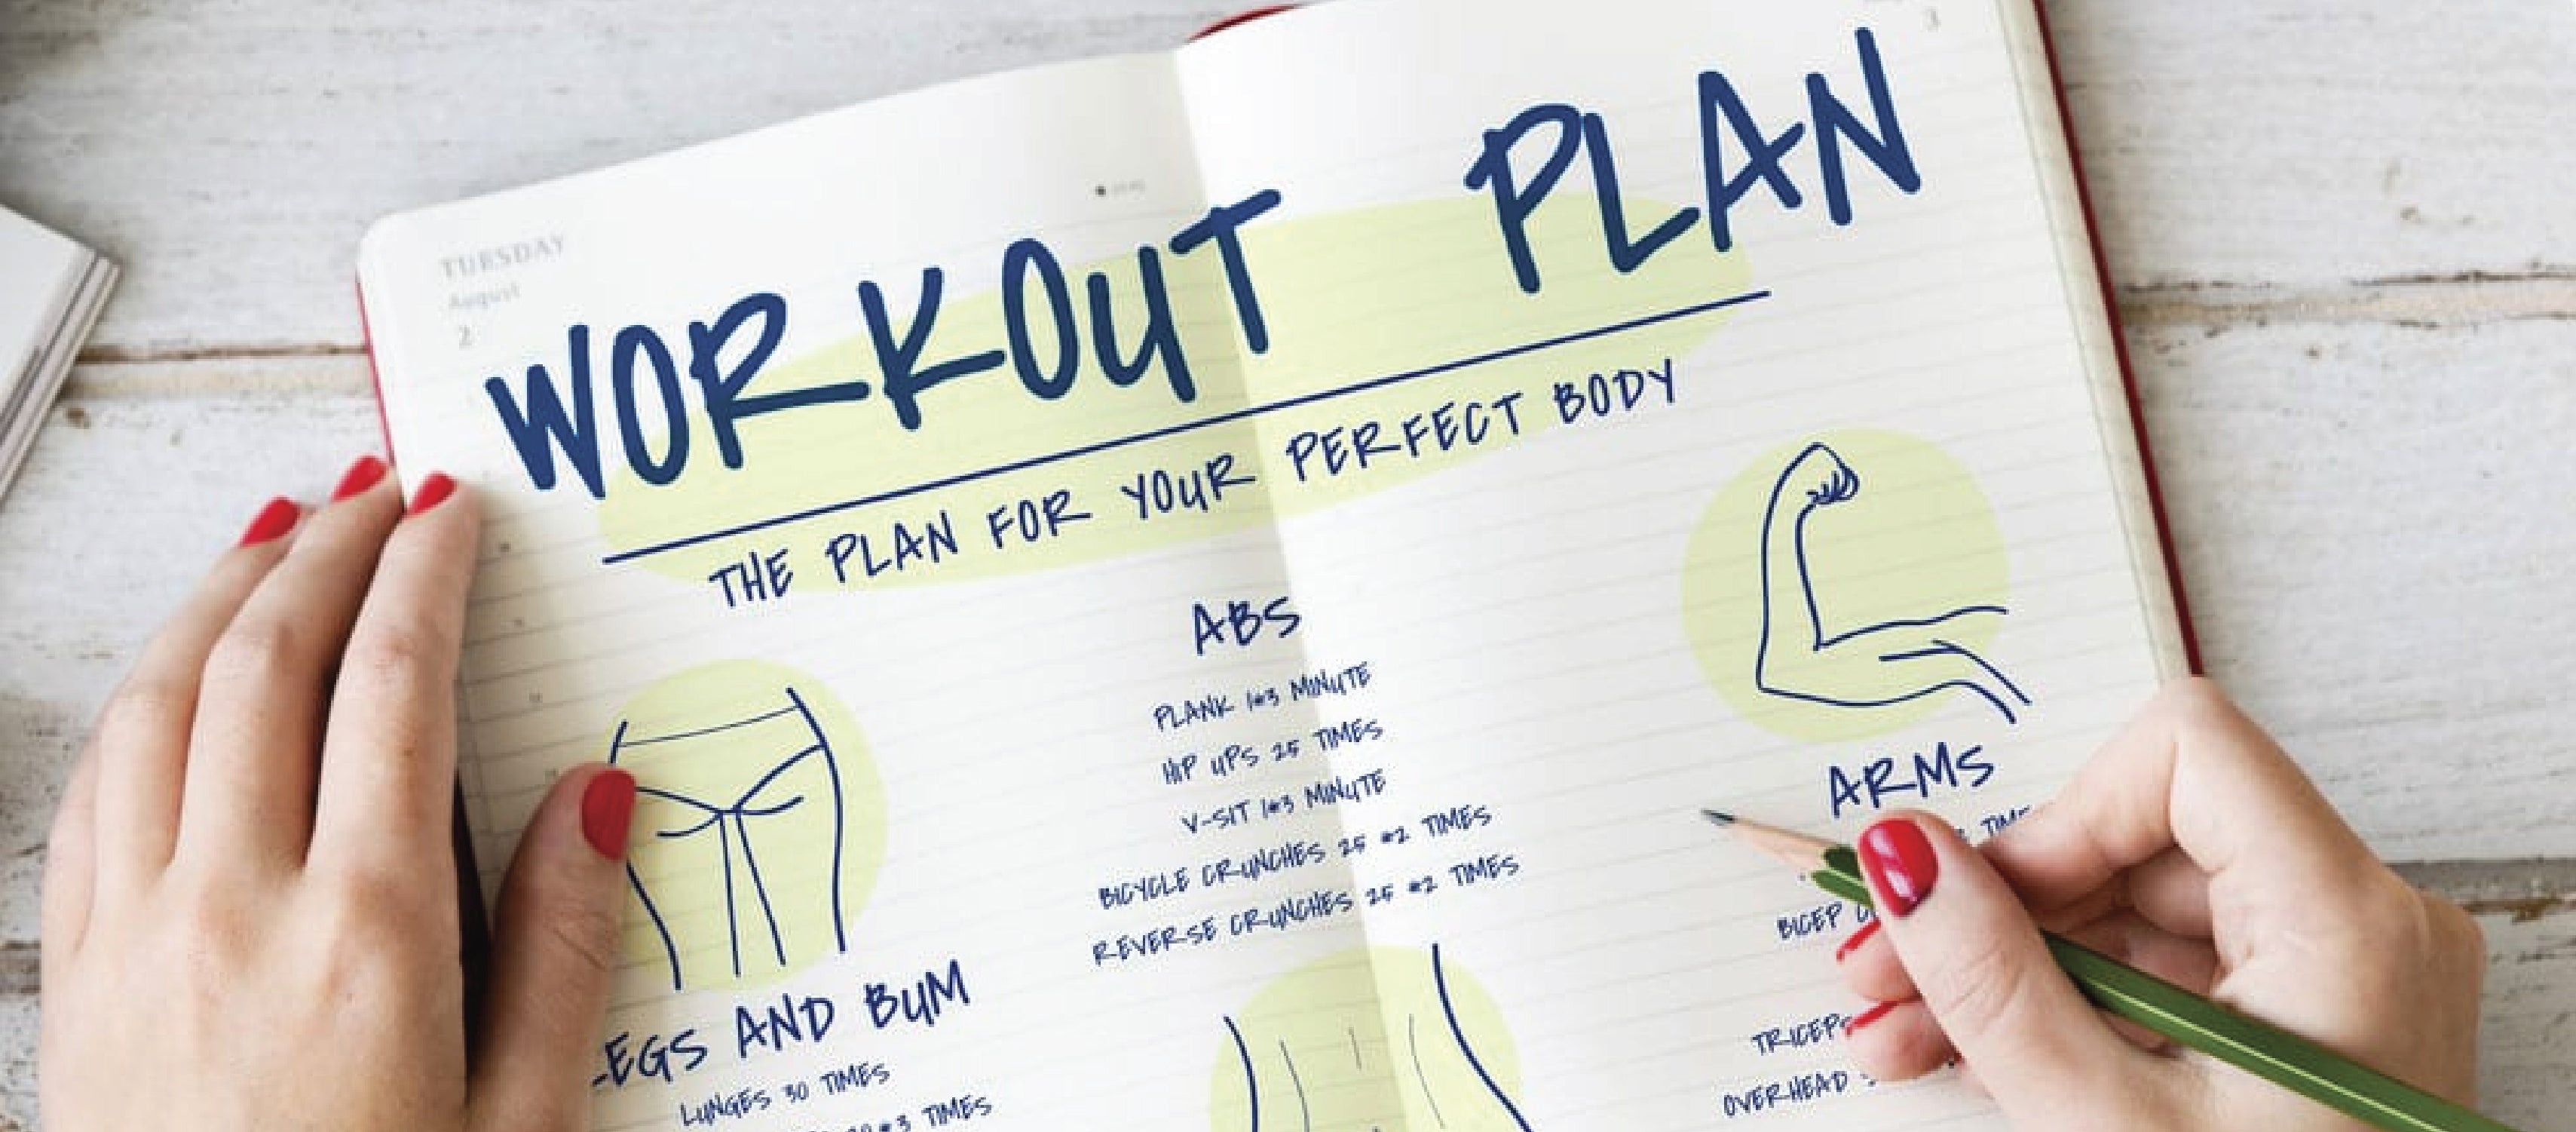 3
TUESDAY
August
2
WORKOUT PLAN
THE PLAN FOR YOUR PERFECT BODY
ABS
PLANK 1*3 MINUTE
HIP UPS 25 TIMES
V-SIT 1*3 MINUTE
BICYCLE CRUNCHES 25 *2 TIMES
REVERSE CRUNCHES 25 *2 TIMES
ARMS
BICEP
TRICEPS
OVERHEAD
EGS AND BUM
LUNGES 30 TIMES
*3 TIMES